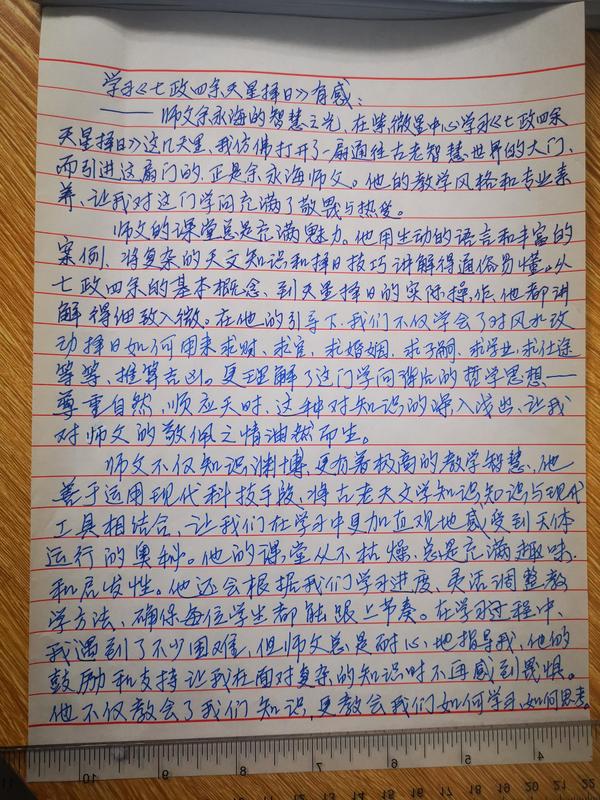 学习《七政四余天星择日》有感:
——师父余永海的智慧之光,在紫微星中心学习《七政四余
天星择日》这几天里,我仿佛打开了一扇通往古老智慧世界的大门、
而引进这扇门的,正是余永海师父。他的教学风格和专业素
养、让我对这门学问充满了敬畏与热爱。
师父的课堂总是充满魅力。他用生动的语言和丰富的
案例、将复杂的天文知识和择日技巧讲解得通俗易懂。从
七政四余的基本概念、到天星择日的实际操作,他都讲
解得细致入微。在他的引导下、我们不仅学会了对风水改
动择日如何用来求财、求官、求婚姻、求子嗣、求学业、求仕途
等等、推算吉凶。更理解了这门学问背后的哲学思想——
尊重自然、顺应天时、这种对知识的深入浅出、让我
对师父的敬佩之情油然而生。
师父不仅知识渊博、更有着极高的教学智慧、他
善于运用现代科技手段、将古老天文学知识知识与现代
工具相结合、让我们在学习中更加直观地感受到天体
运行的奥秘。他的课堂从不枯燥、总是充满趣味
和启发性。他还会根据我们学习进度、灵活调整教
学方法、确保每位学生都能跟上节奏。在学习过程中、
我遇到了不少困难、但师父总是耐心地指导我、他的
鼓励和支持让我在面对复杂的知识时不再感到畏惧。
他不仅教会了我们知识、更教会我们如何学习、如何思考。
10 9 8 7 6 5 4
22